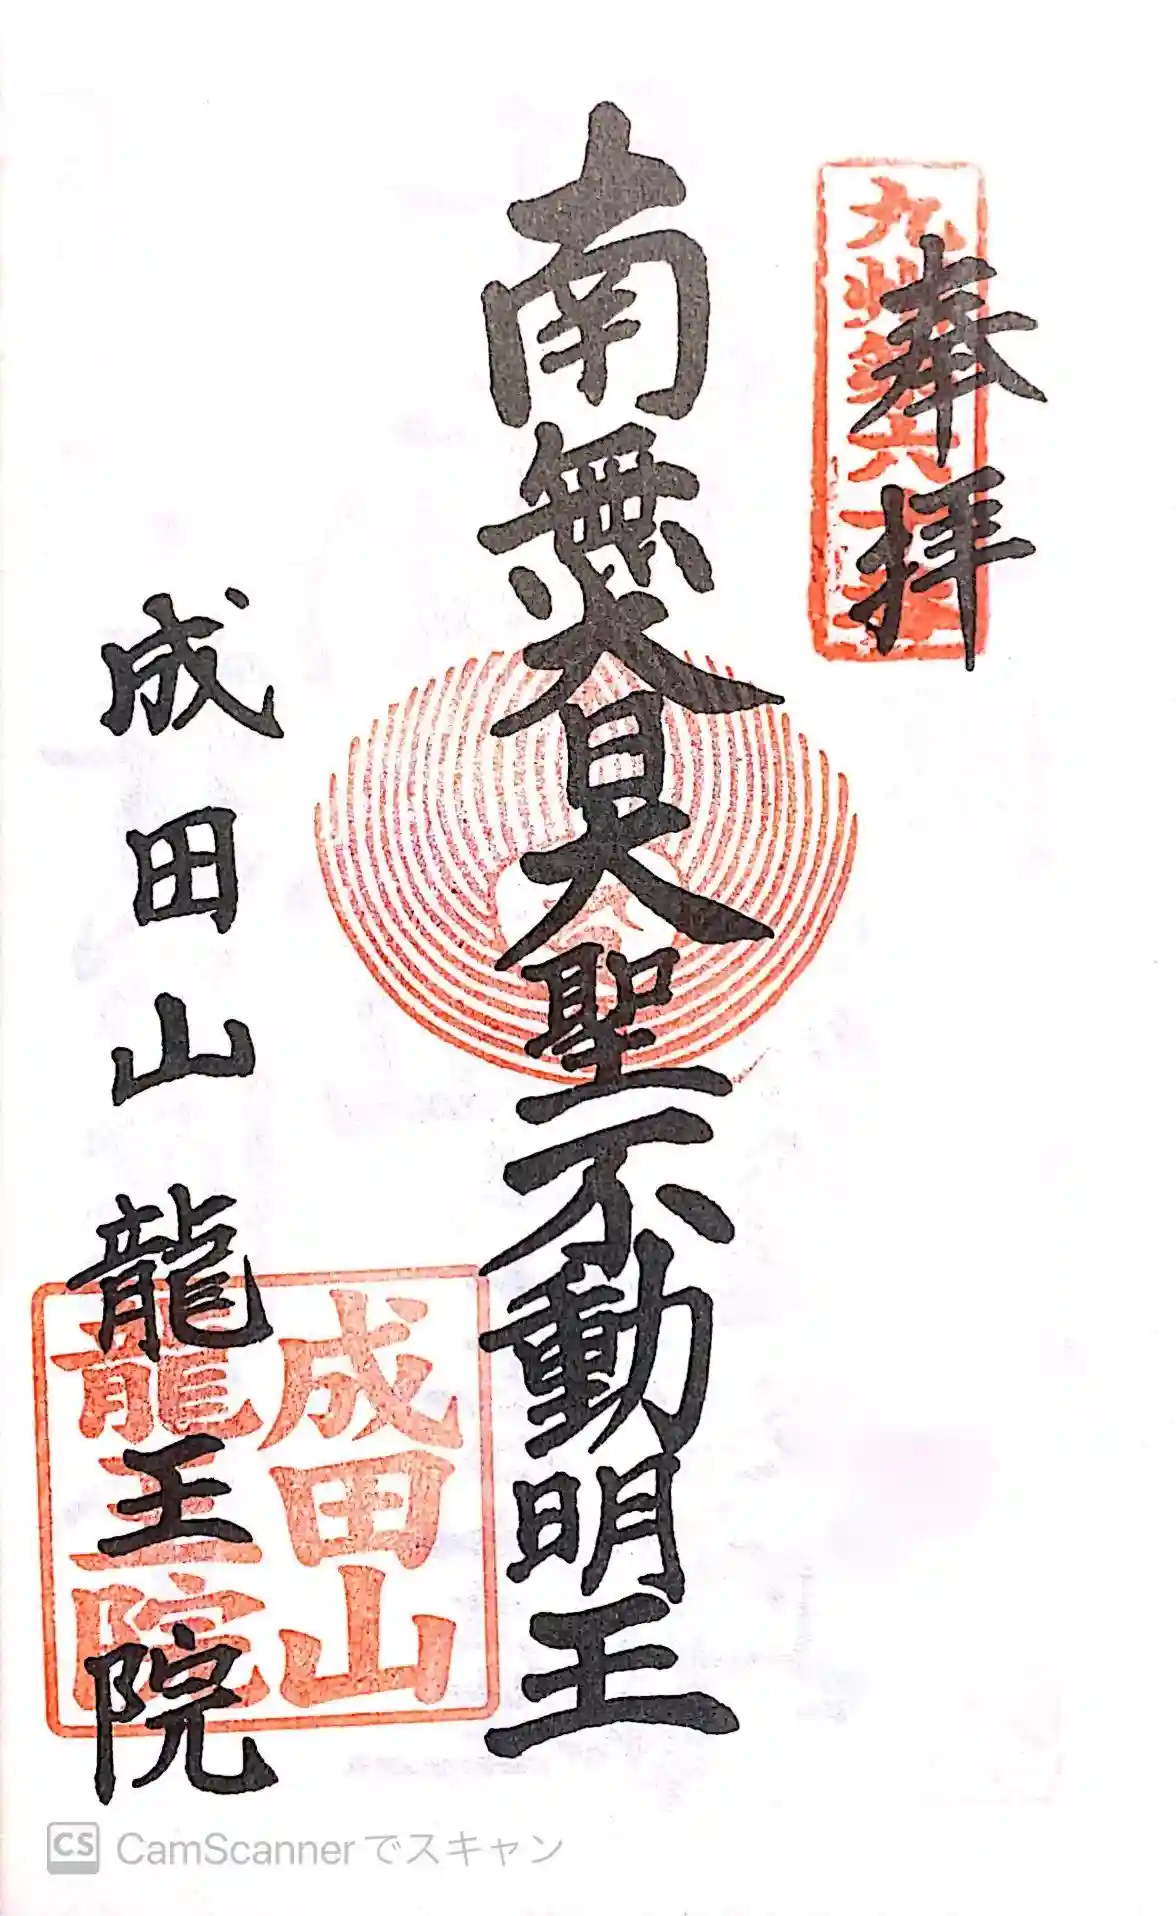 奉拝
九州第六十番
南無大日大聖不動明王
成田山龍王院
成田山
龍王院
CS CamScannerでスキャン